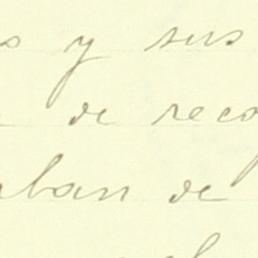 s y sus
de reco
aban de